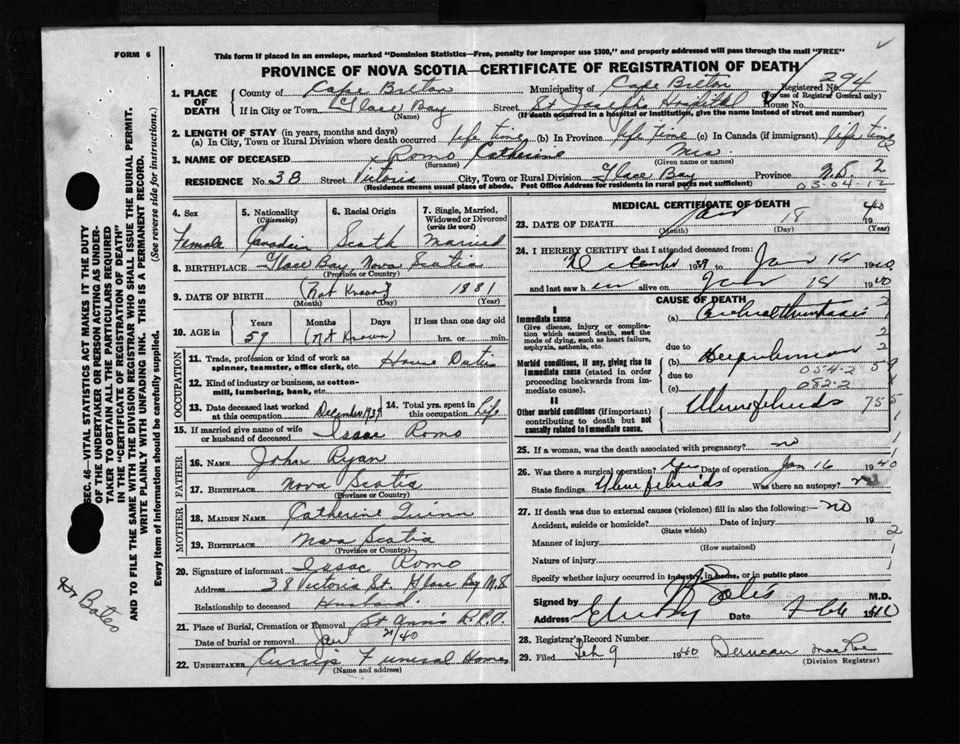 FORM 6
This form if placed in an envelope, marked "Dominion Statistics—Free, penalty for improper use $300," and properly addressed will pass through the mail "FREE"
PROVINCE OF NOVA SCOTIA—CERTIFICATE OF REGISTRATION OF DEATH
1. PLACE OF DEATH
County of Cape Breton Municipality of Cape Breton Registered No. 294
(For use of Registrar General only)
If in City or Town Glace Bay Street St Joseph's Hospital House No.
(Name) (If death occurred in a hospital or institution, give the name instead of street and number)
2. LENGTH OF STAY (in years, months and days)
(a) In City, Town or Rural Division where death occurred life time (b) In Province life time (c) In Canada (if immigrant) life time
3. NAME OF DECEASED Romo Catherine Mrs.
(Surname) (Given name or names)
RESIDENCE No. 38 Street Victoria City, Town or Rural Division Glace Bay Province N.S. 2
(Residence means usual place of abode. Post Office Address for residents in rural parts not sufficient) 03-04-12
4. Sex Female
5. Nationality (Citizenship) Canadain
6. Racial Origin Scoth
7. Single, Married, Widowed or Divorced (write the word) Married
8. BIRTHPLACE Glace Bay, Nova Scotia
(Province or Country)
9. DATE OF BIRTH (Not Known) 1881
(Month) (Day) (Year)
10. AGE in Years Months Days If less than one day old
59 (Not Known) hrs. or min.
OCCUPATION
11. Trade, profession or kind of work as spinner, teamster, office clerk, etc. House Duties
12. Kind of industry or business, as cotton-mill, lumbering, bank, etc.
13. Date deceased last worked at this occupation December 1939
14. Total yrs. spent in this occupation Life
15. If married give name of wife or husband of deceased Issac Romo
FATHER
16. Name John Ryan
17. Birthplace Nova Scotia
(Province or Country)
MOTHER
18. Maiden Name Catherine Quinn
19. Birthplace Nova Scotia
(Province or Country)
20. Signature of informant Issac Romo
Address 38 Victoria St. Glace Bay N.S
Relationship to deceased Husband
21. Place of Burial, Cremation or Removal St Ann's
Date of burial or removal Jan 21/40
22. Undertaker Curry's Funeral Home
(Name and address)
MEDICAL CERTIFICATE OF DEATH
23. DATE OF DEATH Jan 18 1940
(Month) (Day) (Year)
24. I HEREBY CERTIFY that I attended deceased from:
1939 to Jan 18 1940
and last saw her alive on Jan 18 1940
CAUSE OF DEATH
I
Immediate cause
Give disease, injury or complication which caused death, not the mode of dying, such as heart failure, asphyxia, asthenia, etc.
(a)
due to
Morbid conditions, if any, giving rise to immediate cause (stated in order proceeding backwards from immediate cause).
(b)
due to 054-2
(c) 082-2
II
Other morbid conditions (if important) contributing to death but not causally related to immediate cause.
25. If a woman, was the death associated with pregnancy? no
26. Was there a surgical operation? Yes Date of operation Jan 16 1940
State findings Was there an autopsy? no
27. If death was due to external causes (violence) fill in also the following:— NO
Accident, suicide or homicide? Date of injury 19
(State which)
Manner of injury
(How sustained)
Nature of injury
Specify whether injury occurred in industry, in home, or in public place
Signed by M.D.
Address Date Feb 1940
28. Registrar's Record Number
29. Filed Feb 9 1940 Duncan MacRae
(Division Registrar)
SEC. 46—VITAL STATISTICS ACT MAKES IT THE DUTY OF THE UNDERTAKER OR PERSON ACTING AS UNDERTAKER TO OBTAIN ALL THE PARTICULARS REQUIRED IN THE "CERTIFICATE OF REGISTRATION OF DEATH" AND TO FILE THE SAME WITH THE DIVISION REGISTRAR WHO SHALL ISSUE THE BURIAL PERMIT.
WRITE PLAINLY WITH UNFADING INK. THIS IS A PERMANENT RECORD.
Every item of information should be carefully supplied. (See reverse side for instructions.)
Dr Bates